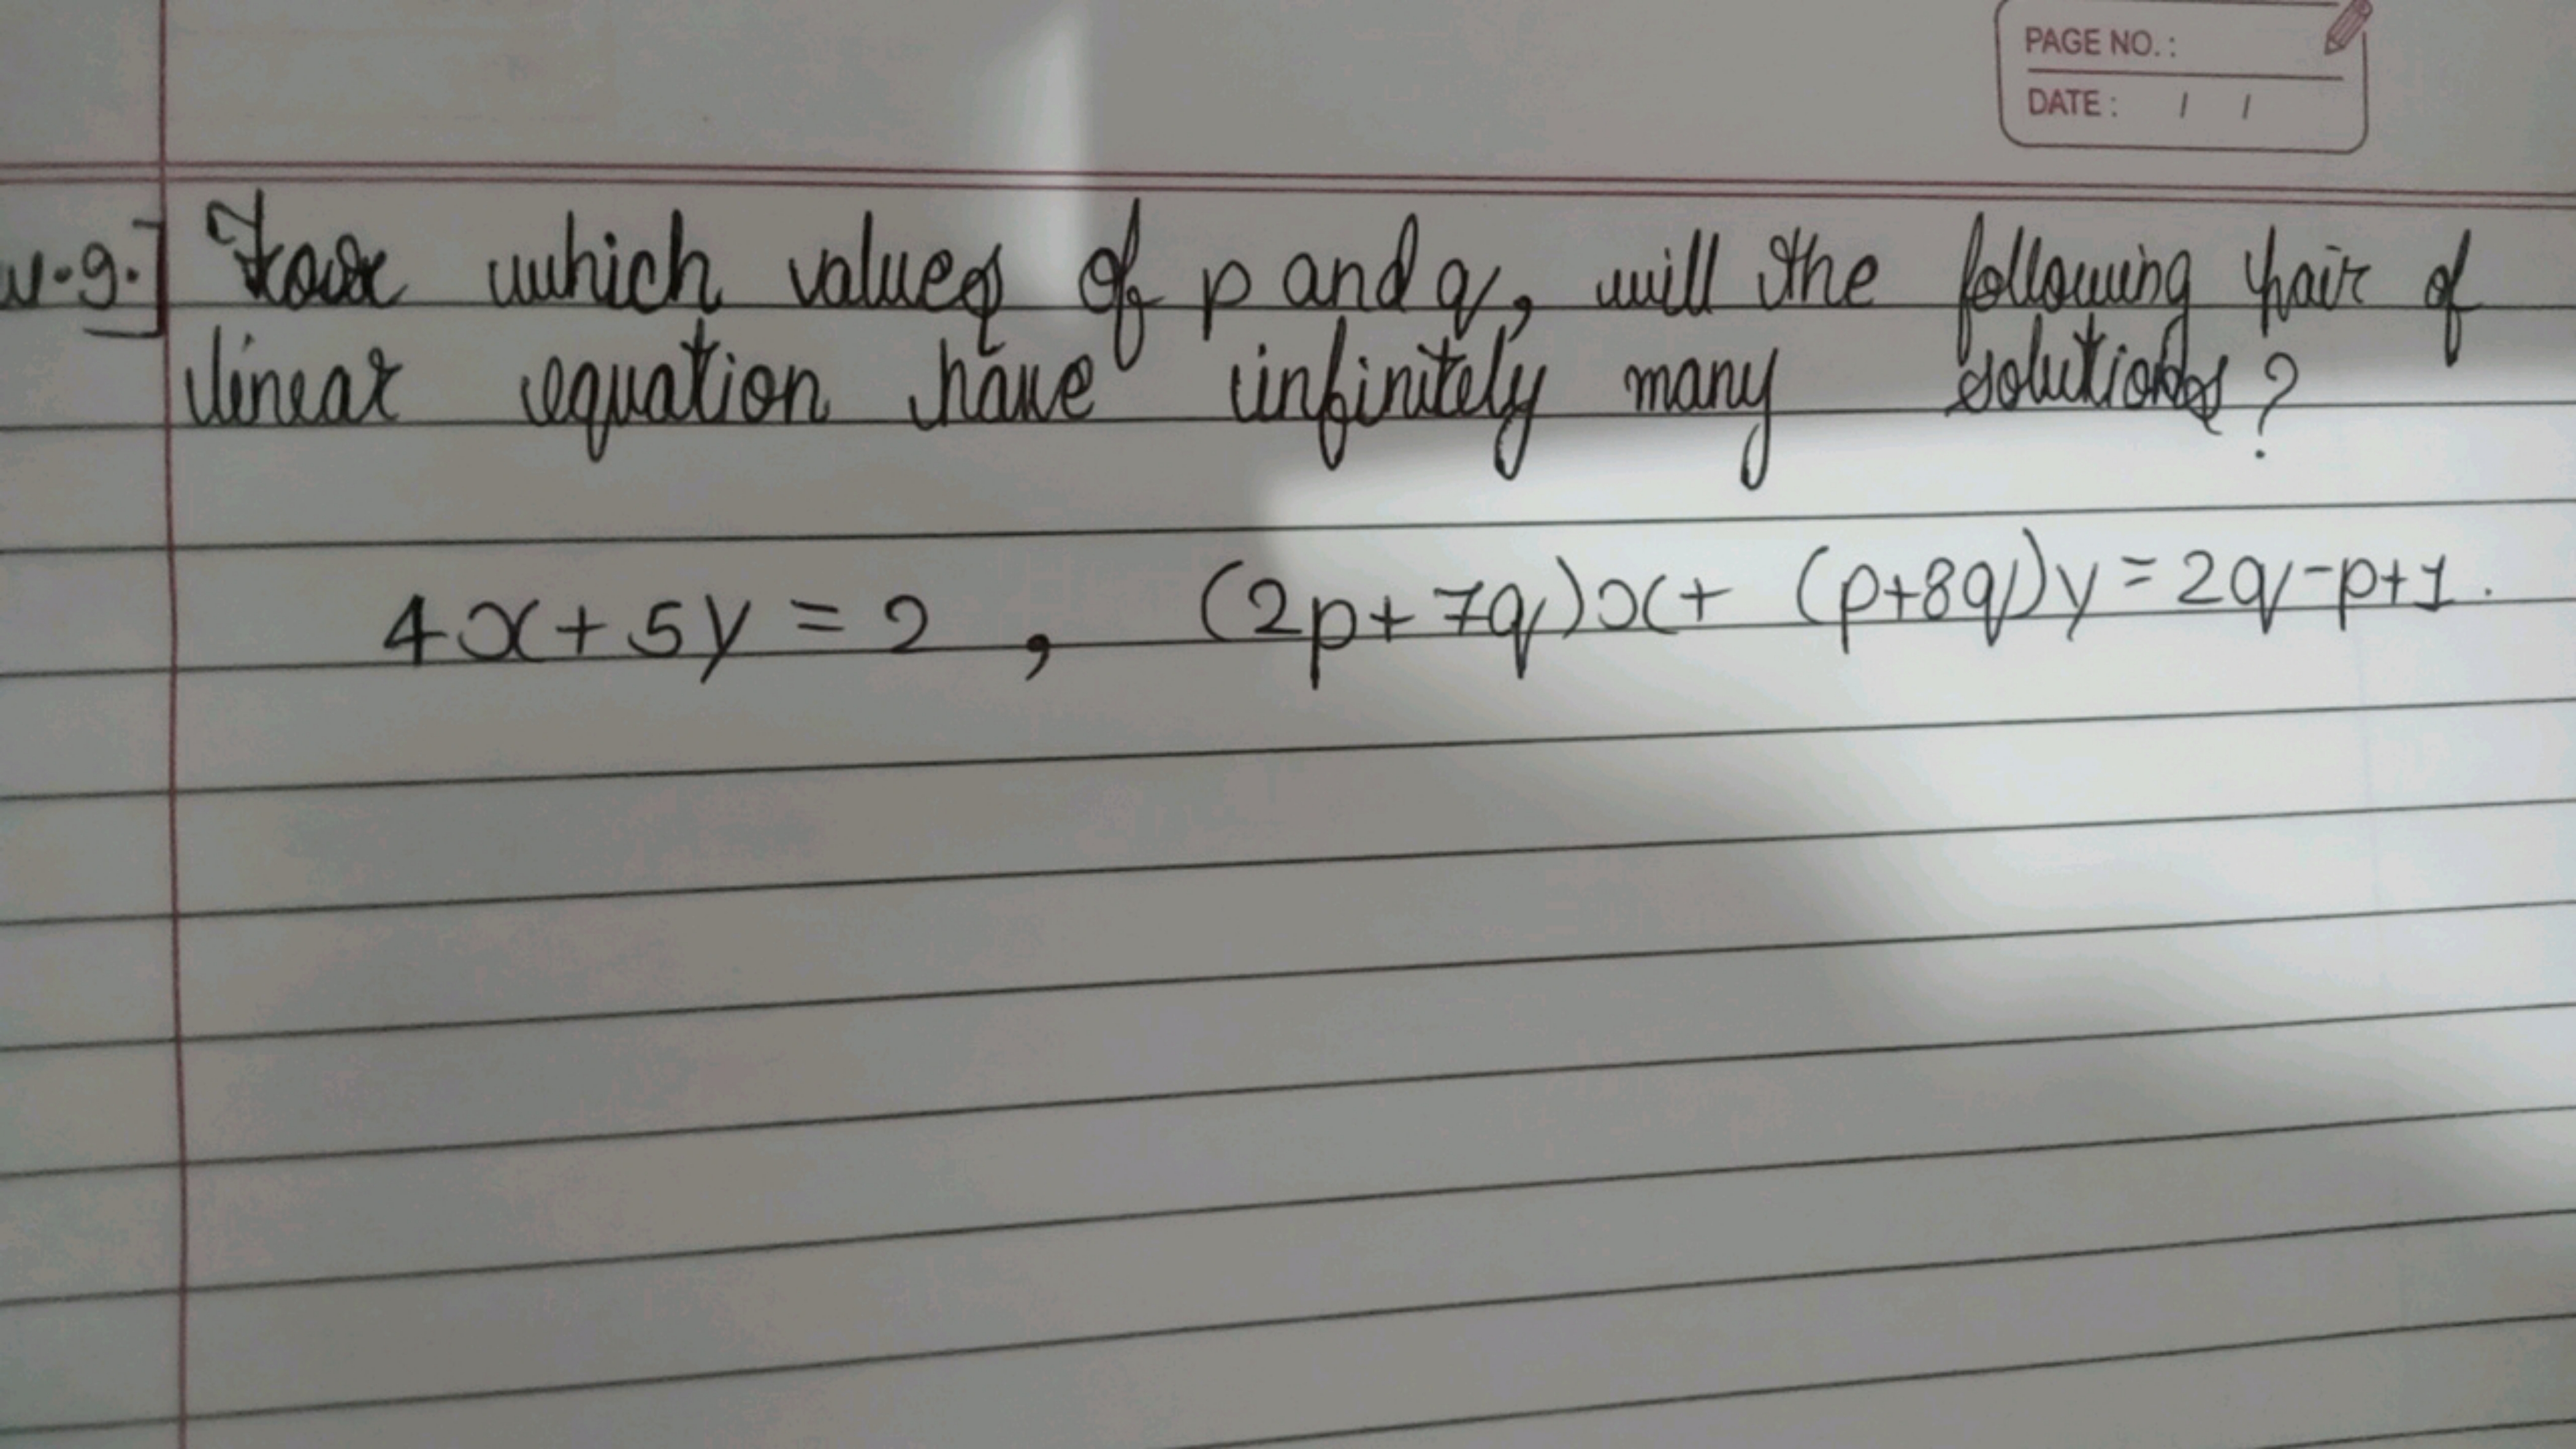 PAGE NO.:
DATE: / /
For which values of p and q, will the following pair of
linear equation have infinitely many solutions?
4x+5y=2, (2p+7q)x+ (p+8q)y=2q-p+1.